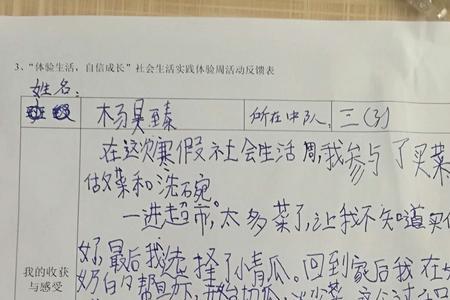 3、“体验生活，自信成长”社会生活实践体验周活动反馈表
姓名：
杨昊臻 所在中队：三(3)
在这次寒假社会生活周，我参与了买菜
做菜和洗碗。
一进超市，太多菜了，让我不知道买什
好，最后我选择了小青瓜。回到家后我在
我的收获
与感受
奶的帮助